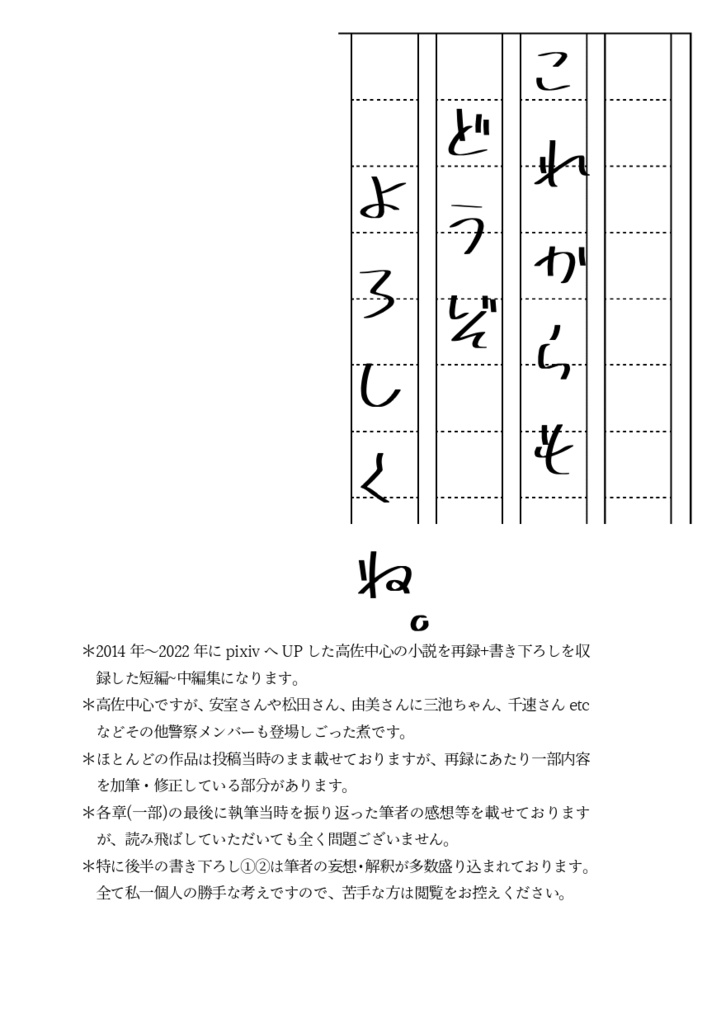 これからも
どうぞ
よろしくね。
＊2014 年～2022 年に pixiv へ UP した高佐中心の小説を再録+書き下ろしを収
録した短編~中編集になります。
＊高佐中心ですが、安室さんや松田さん、由美さんに三池ちゃん、千速さん etc
などその他警察メンバーも登場しごった煮です。
＊ほとんどの作品は投稿当時のまま載せておりますが、再録にあたり一部内容
を加筆・修正している部分があります。
＊各章(一部)の最後に執筆当時を振り返った筆者の感想等を載せております
が、読み飛ばしていただいても全く問題ございません。
＊特に後半の書き下ろし①②は筆者の妄想・解釈が多数盛り込まれております。
全て私一個人の勝手な考えですので、苦手な方は閲覧をお控えください。